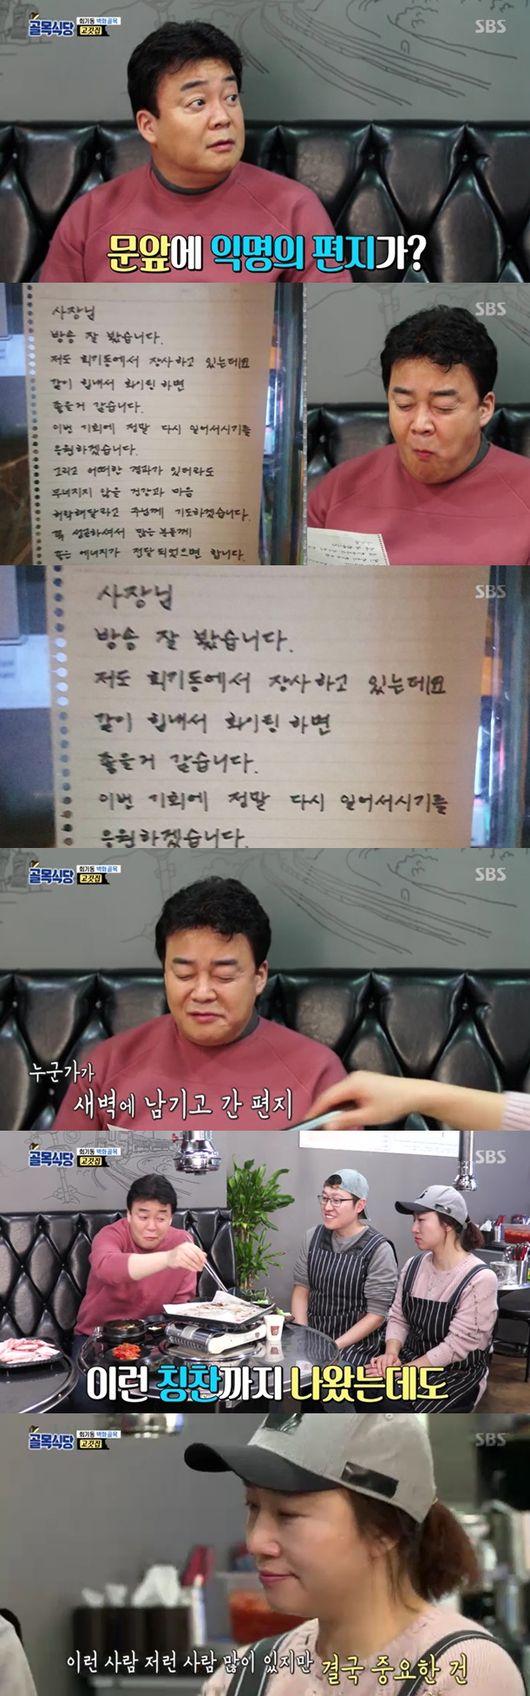 골목식당
회기동 벽화골목
고깃집
SBS
문앞에 익명의 편지가?
SBS
사장님
방송 잘 봤습니다.
저도 회기동에서 장사하고 있는데요
같이 힘내서 화이팅 하면
좋을거 같습니다.
이번 기회에 정말 다시 일어서시기를
응원하겠습니다.
그리고 어떠한 결과가 있더라도
무너지지 않을 건강과 마음
허락해달라고 주님께 기도하겠습니다.
꼭 성공하셔서 많은 분들께
좋은 에너지가 전달 되었으면 합니다.
SBS
사장님
방송 잘 봤습니다.
저도 회기동에서 장사하고 있는데요
같이 힘내서 화이팅 하면
좋을거 같습니다.
이번 기회에 정말 다시 일어서시기를
응원하겠습니다.
골목식당
회기동 벽화골목
고깃집
SBS
누군가가
새벽에 남기고 간 편지
골목식당
회기동 벽화골목
고깃집
SBS
이런 칭찬까지 나왔는데도
골목식당
회기동 벽화골목
고깃집
SBS
이런 사람 저런 사람 많이 있지만 결국 중요한 건